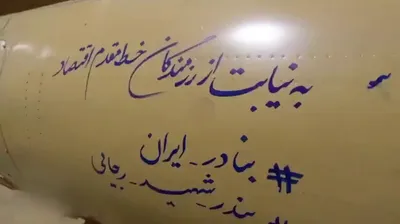 به نیابت از رزمندگان خط مقدم اقتصاد
#بنادر_ایران
#بندر_شهید_رجائی